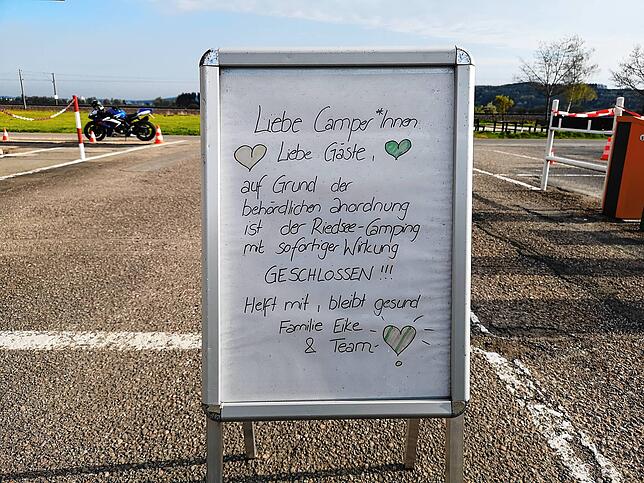 Liebe Camper*Innen
Liebe Gäste,
auf Grund der
behördlichen anordnung
ist der Riedsee-Camping
mit sofortiger Wirkung
GESCHLOSSEN !!!
Helft mit, bleibt gesund
Familie Eike
& Team